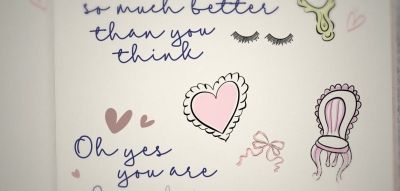 so much better
than you
think
Oh yes
you are